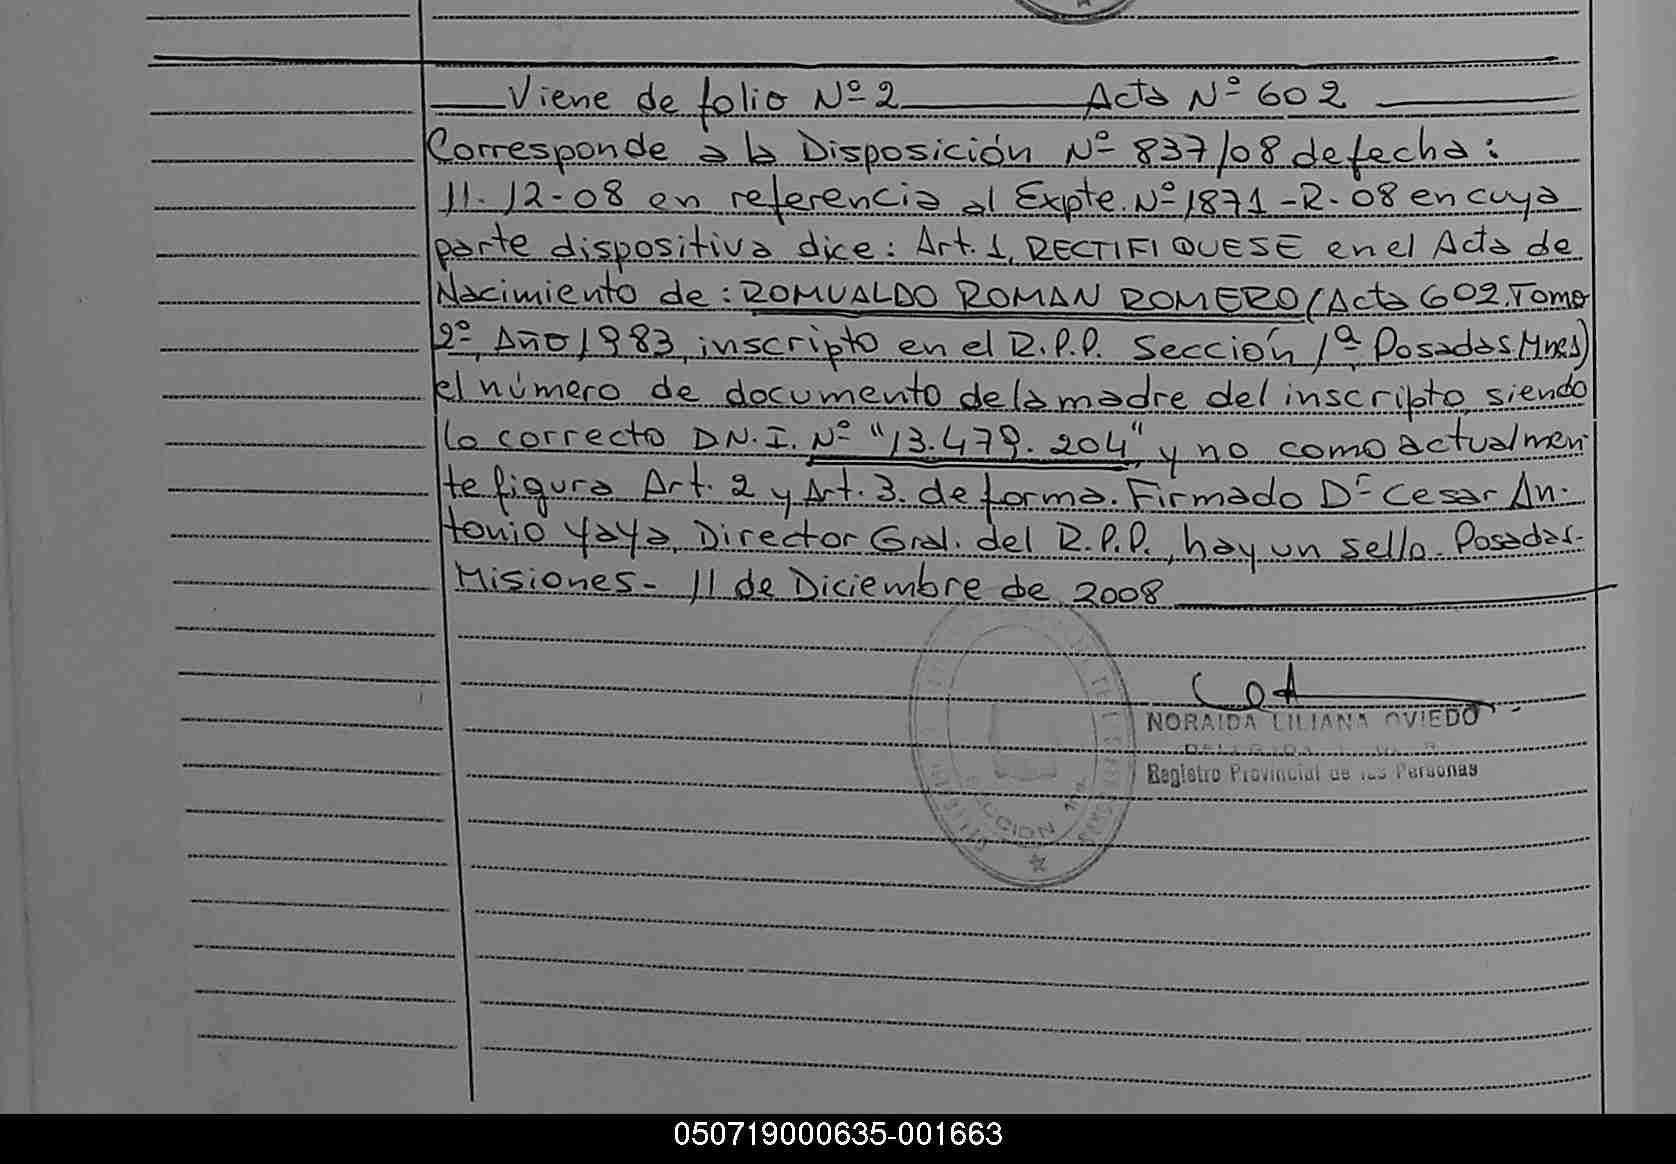 Viene de folio Nº 2 Acta Nº 602
Corresponde a la Disposición Nº 837/08 de fecha:
11-12-08 en referencia al Expte. Nº 1871-R-08 en cuya
parte dispositiva dice: Art. 1, RECTIFIQUESE en el Acta de
Nacimiento de: ROMUALDO ROMAN ROMERO (Acta 602. Tomo
2º, Año 1983, inscripto en el R.P.P. Sección 1ª Posadas Mnes)
el número de documento de la madre del inscripto, siendo
lo correcto D.N.I. Nº "13.479.204" y no como actualmen
te figura Art. 2 y Art. 3. de forma. Firmado Dr Cesar An-
tonio Yaya, Director Gral. del R.P.P., hay un sello. Posadas-
Misiones- 11 de Diciembre de 2008
NORAIDA LILIANA OVIEDO
Registro Provincial de las Personas
SECCION 1ra.
050719000635-001663